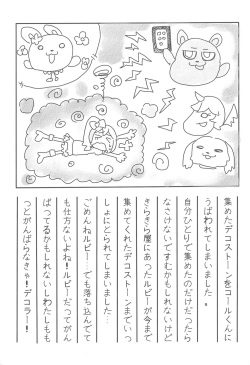 集めたデコストーンをコールくんに
うばわれてしまいました。
自分ひとりで集めたのだけだったら
なさけないですむかもしれないけど
きらきら闇にあったルビーが今まで
集めてくれたデコストーンまでいっ
しょにとられてしまいました…
ごめんねルビー…でも落ち込んでて
も仕方ないよね！ルビーだってがん
ばってるかもしれないしわたしもも
っとがんばらなきゃ！デコラー！